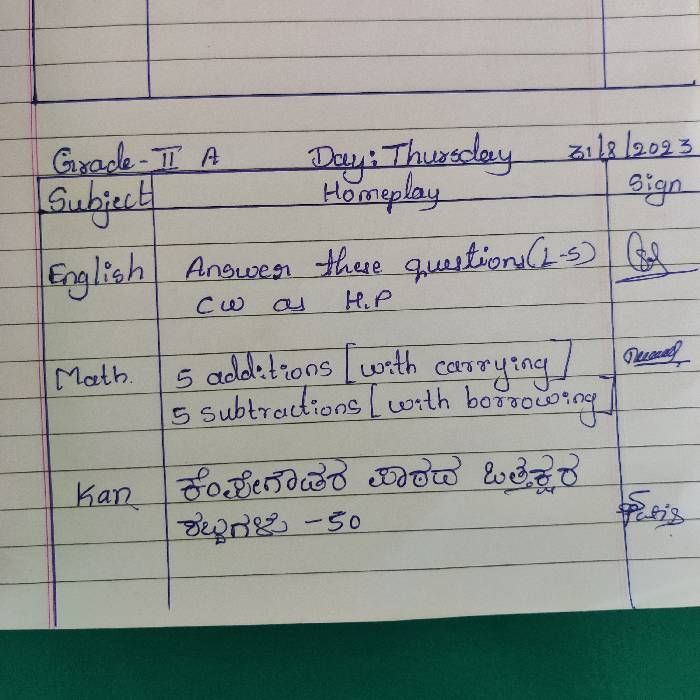 Grade-II A Day: Thursday 31/8/2023
Subject Homeplay Sign
English Answer these questions(L-5)
CW as H.P
Math. 5 additions [with carrying]
5 subtractions [with borrowing]
Kan ಕೆಂಪೇಗೌಡರ ಪಾಠದ ಒತ್ತಕ್ಷರ
ಶಬ್ದಗಳು -50